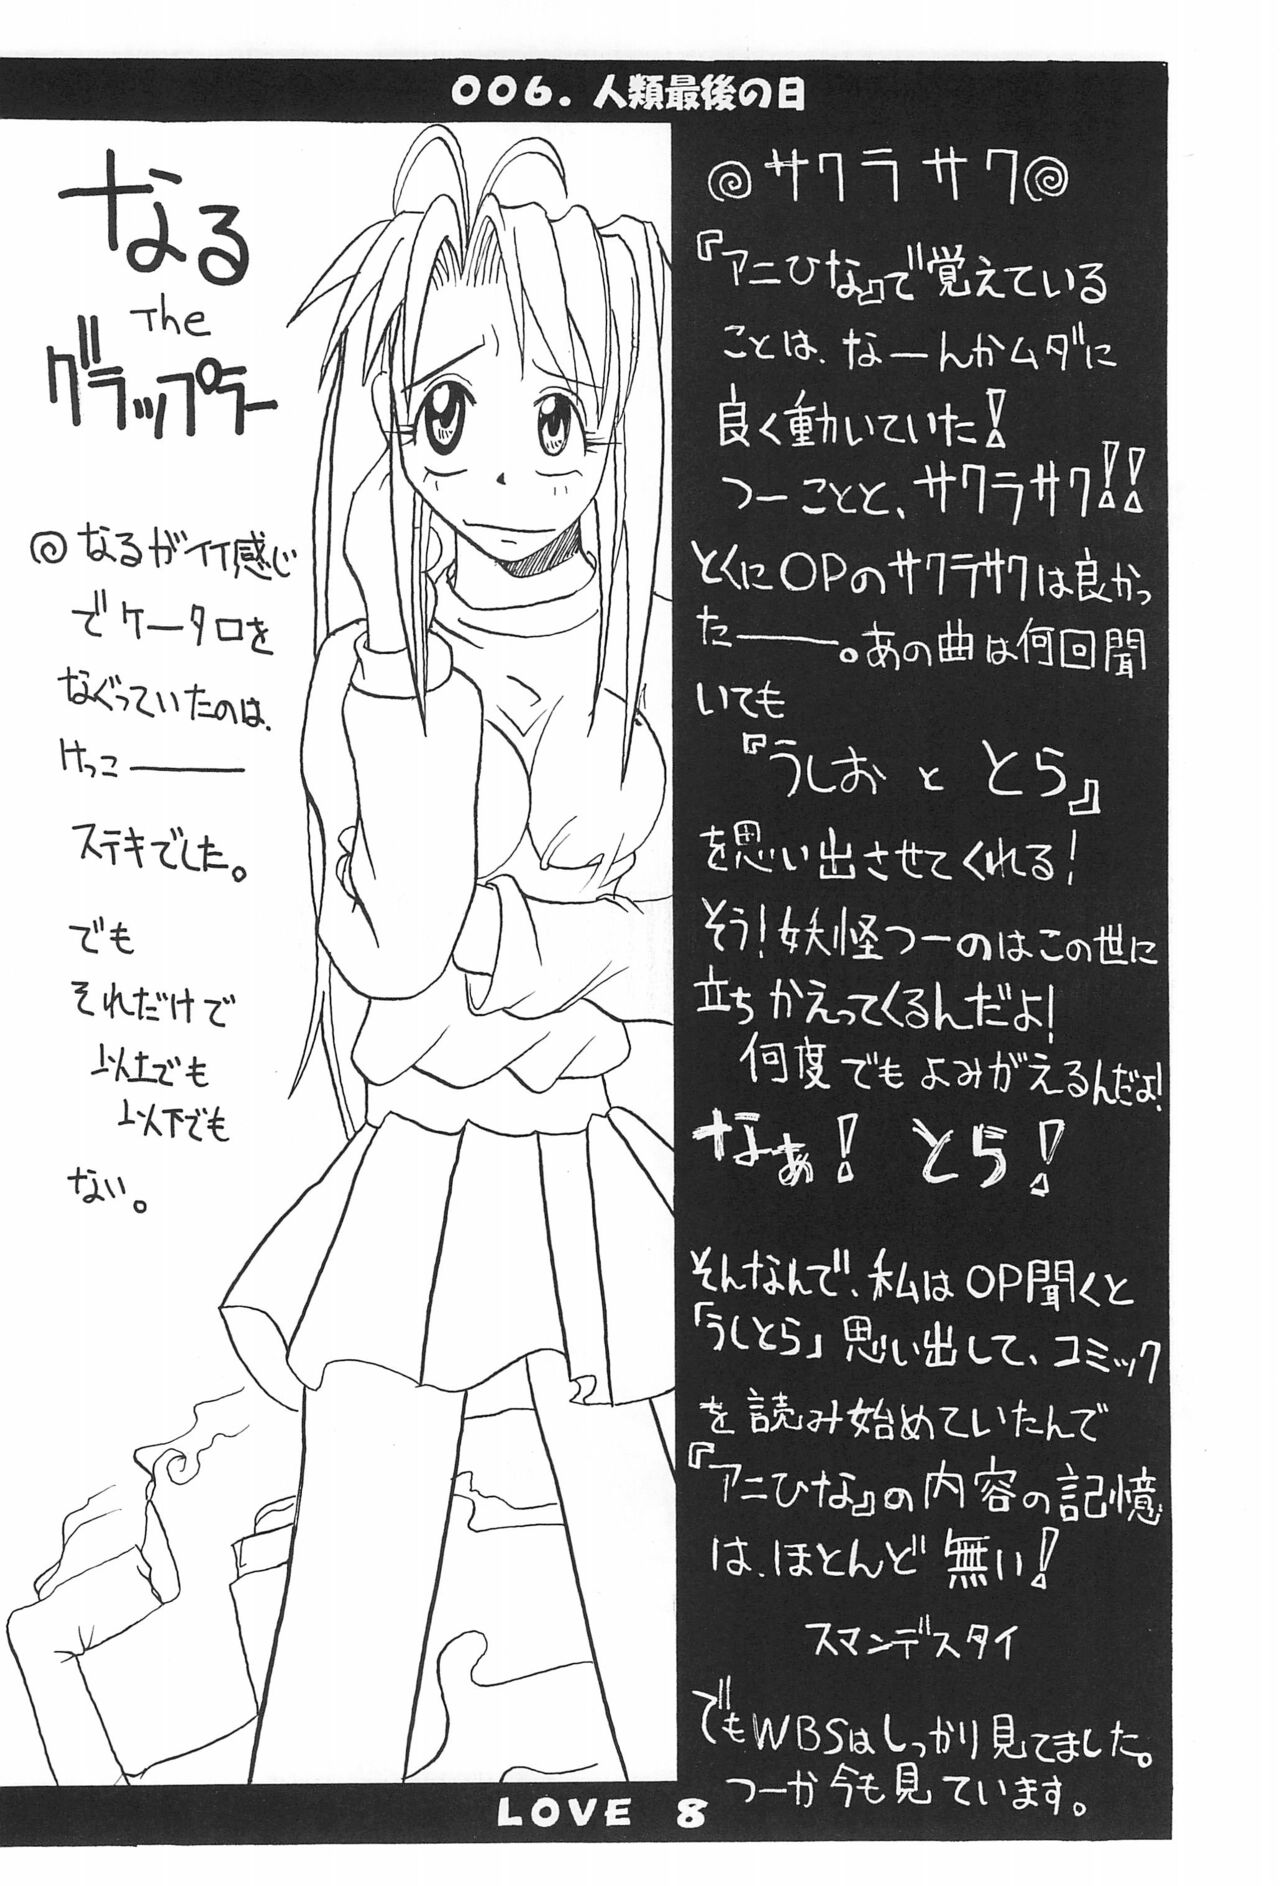 006. 人類最後の日
◎サクラサク◎
『アニひな』で覚えている
ことは、なーんかムダに
良く動いていた!
つーことと、サクラサク!!
とくにOPのサクラサクは良かっ
たーー。あの曲は何回聞
いても
『うしお と とら』
を思い出させてくれる!
そう!妖怪つーのはこの世に
立ちかえってくるんだよ!
何度でもよみがえるんだよ!
なぁ! とら!
そんなんで、私はOP聞くと
「うしとら」思い出して、コミック
を読み始めていたんで
『アニひな』の内容の記憶
は、ほとんど無い!
スマンデスタイ
でもWBSはしっかり見てました。
つーか今も見ています。
なる
The
グラップラー
◎なるがイイ感じ
でケータロを
なぐっていたのは、
けっこーー
ステキでした。
でも
それだけで
以上でも
以下でも
ない。
LOVE 8